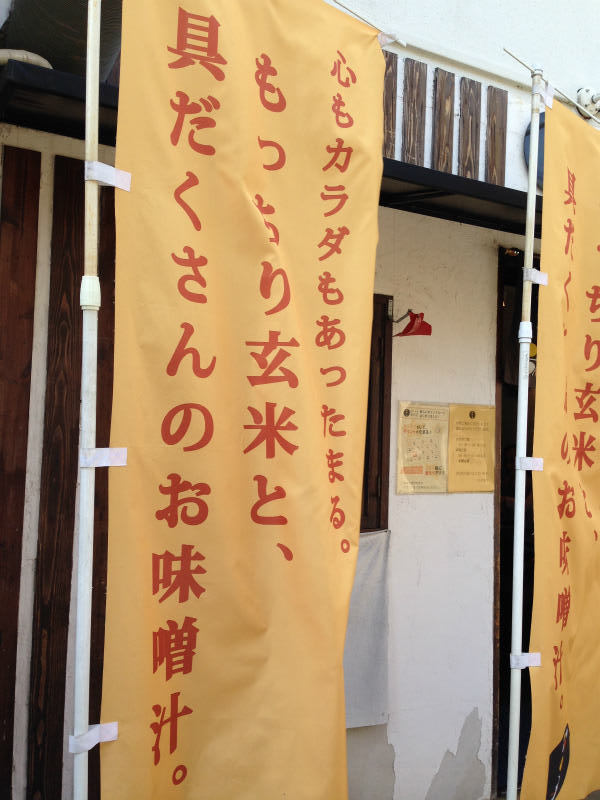 心もカラダもあったまる。
もっちり玄米と、
具だくさんのお味噌汁。
ちり玄米と、
具だく のお味噌汁。